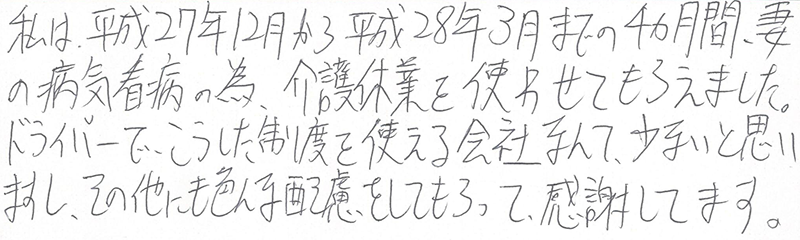 私は、平成27年12月から平成28年3月までの4カ月間、妻
の病気看病の為、介護休業を使わせてもらえました。
ドライバーで、こうした制度を使える会社なんて、少ないと思い
ますし、その他にも色んな配慮をしてもらって、感謝してます。